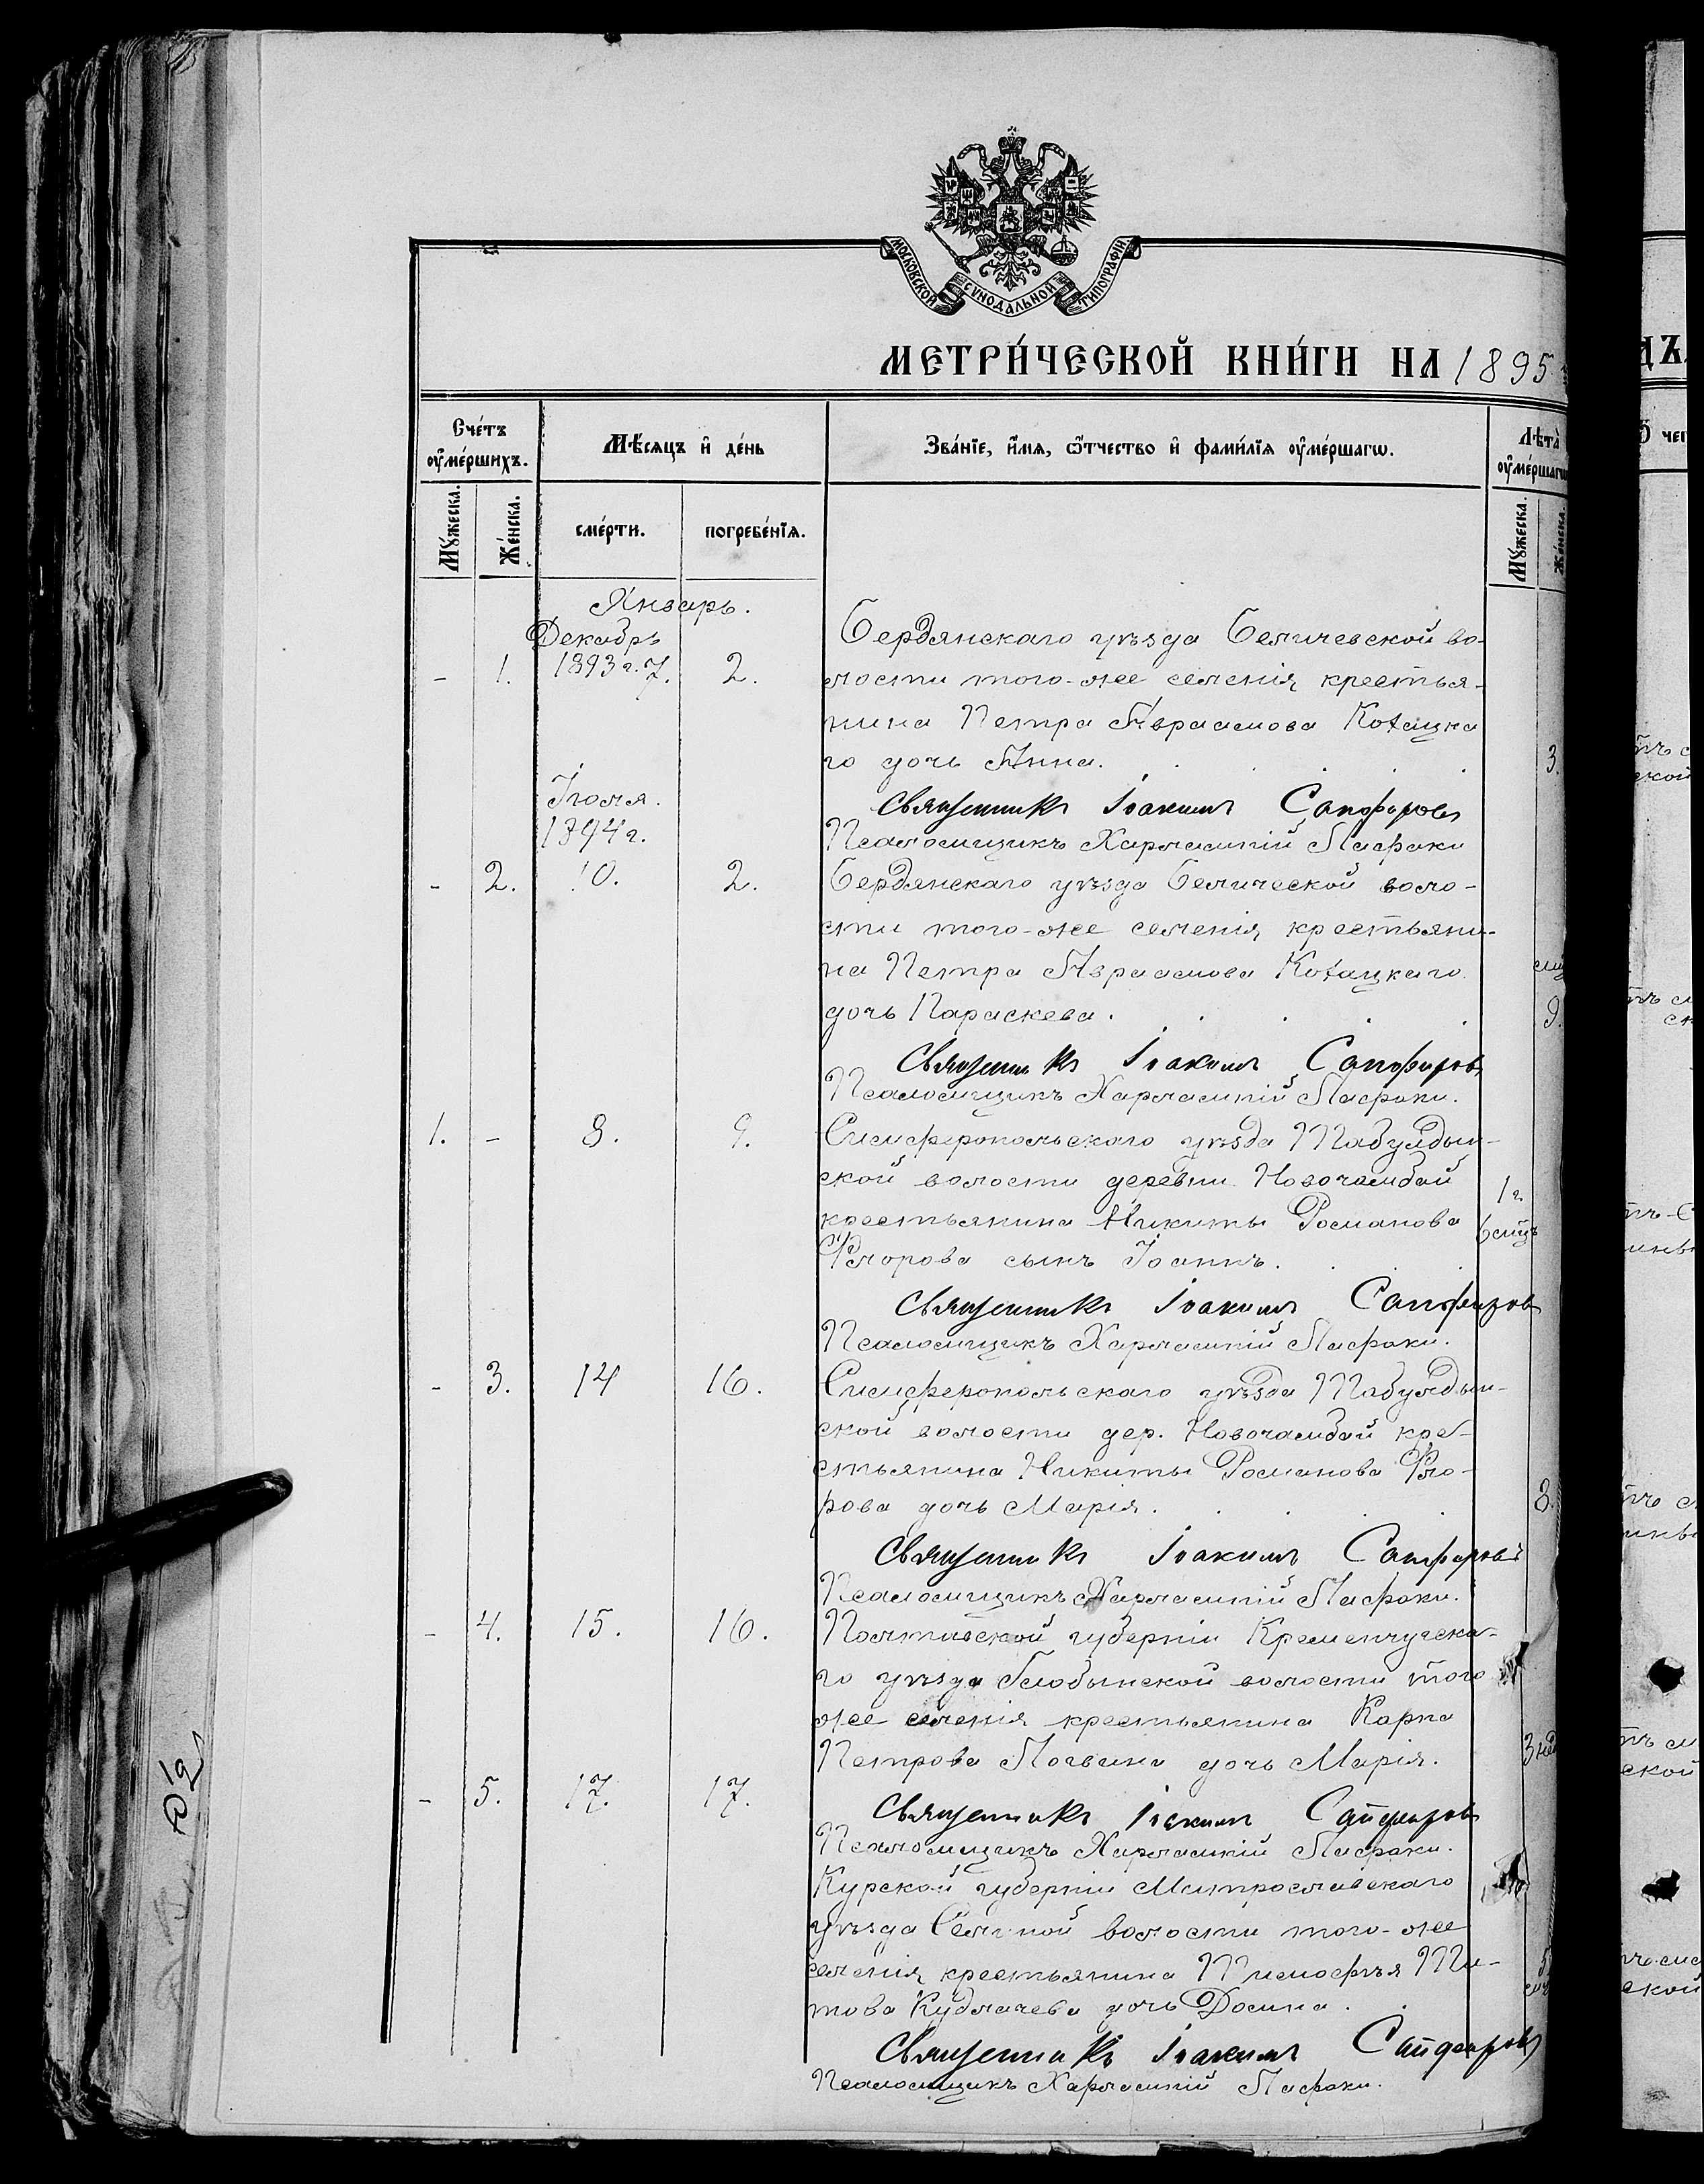 МОСКОВСКОЙ СѴНОДАЛЬНОЙ ТИПОГРАФІИ
МЕТРИ́ЧЕСКОЙ КНИ́ГИ НА 1895
Сче́тъ ᲂу҆ме́ршихъ.
Мꙋ́жеска.
Же́нска.
Мѣ́сяцъ и҆ де́нь
сме́рти.
погребе́нїѧ.
Зва́нїе, и҆́мѧ, ѻ҆́тчество и҆ фами́лїѧ ᲂу҆ме́ршагѡ.
Лѣта̀ ᲂу҆ме́ршагѡ
Мꙋ́жеска.
Же́нска
Январь.
Декабрь
1893 г. 7.
- 1. 2.
Бердянскаго уѣзда Беличевской во-
лости того-же селенія крестья-
нина Петра Авраамова Коѳацка
го дочь Анна. 3.
Священникъ Іоакимъ Сапфировъ
Псаломщикъ Харлампій Пафаки
Іюля.
1894 г.
- 2. 10. 2.
Бердянскаго уѣзда Белической воло-
сти того-же селенія крестьяни-
на Петра Авраамова Коѳацкаго
дочь Параскева. 9.
Священникъ Іоакимъ Сапфировъ
Псаломщикъ Харлампій Пафаки.
1. - 8. 9.
Симферопольскаго уѣзда Табулдын-
ской волости деревни Новочамбай
крестьянина Никиты Романова
Флорова сынъ Іоаннъ.
1 г.
6 мцъ
Священникъ Іоакимъ Сапфировъ
Псаломщикъ Харлампій Пафаки.
- 3. 14 16.
Симферопольскаго уѣзда Табулдын-
ской волости дер. Новочамбай кре-
стьянина Никиты Романова Фло-
рова дочь Марія. 3.
Священникъ Іоакимъ Сапфировъ
Псаломщикъ Харлампій Пафаки.
- 4. 15. 16.
Полтавской губерніи Кременчугска-
го уѣзда Глобынской волости того
же селенія крестьянина Карпа
Петрова Логвина дочь Марія. 3 нед
Священникъ Іоакимъ Сапфировъ
Псаломщикъ Харлампій Пафаки.
- 5. 17. 17.
Курской губерніи Митрославскаго
уѣзда волости того-же
селенія крестьянина Тимофѣя Ти-
това Кудлачева дочь Домна. 5
Священникъ Іоакимъ Сапфировъ
Псаломщикъ Харлампій Пафаки.